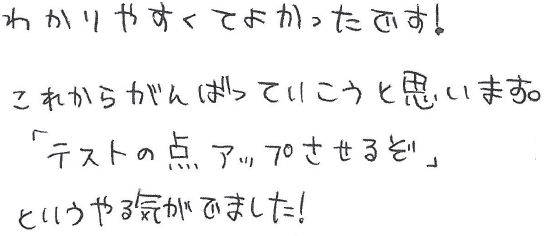 わかりやすくてよかったです!
これからがんばっていこうと思います。
「テストの点アップさせるぞ」
というやる気がでました!